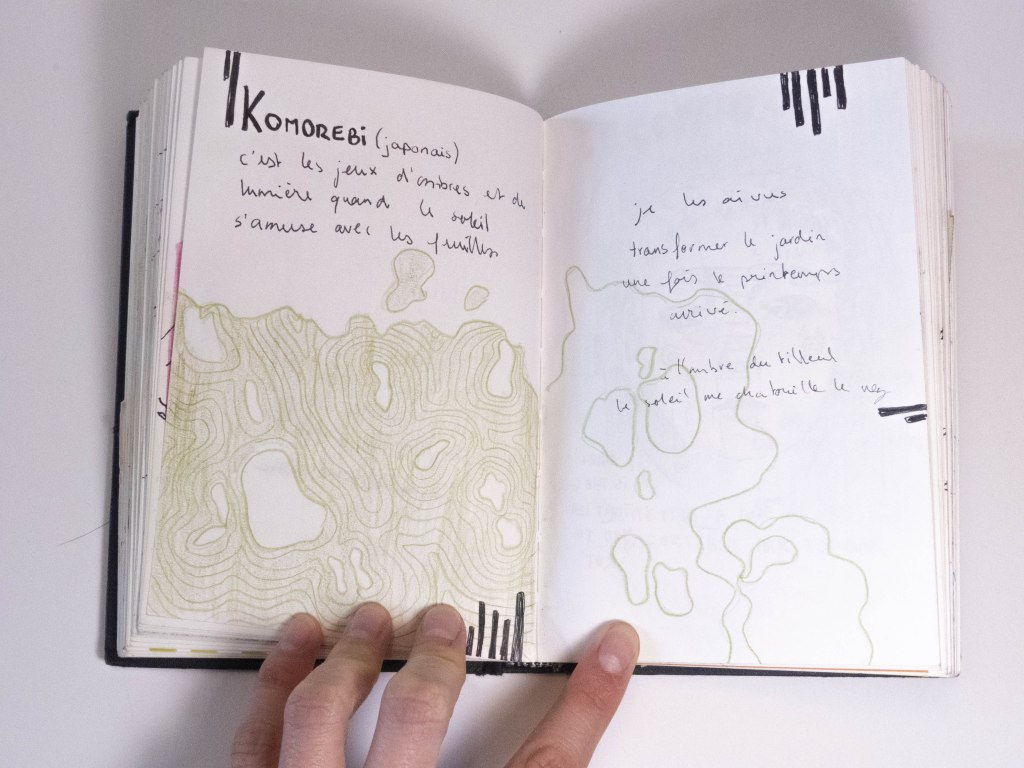 KOMOREBi (japonais)
c'est les jeux d'ombres et de
lumière quand le soleil
s'amuse avec les feuilles
je les ai vus
transformer le jardin
une fois le printemps
arrivé.
à l'ombre du tilleul
le soleil me chatouille le nez